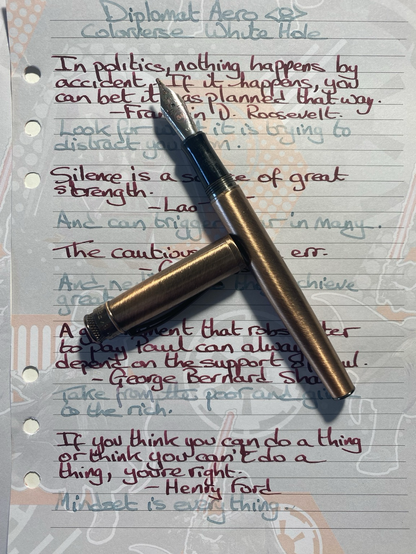 Diplomat Aero <B>
Colorverse White Hole
In politics, nothing happens by
accident. If it happens, you
can bet it was planned that way.
- Franklin D. Roosevelt.
Look for it is trying to
distract you
Silence is a source of great
strength.
- Lao
And can trigger in many.
The cautious err.
And achieve
great
A government that robs
to pay Paul can always
depend on the support of Paul.
- George Bernard Shaw
Take from the poor and give
to the rich.
If you think you can do a thing
or think you can't do a
thing, you're right.
- Henry Ford
Mindset is everything.